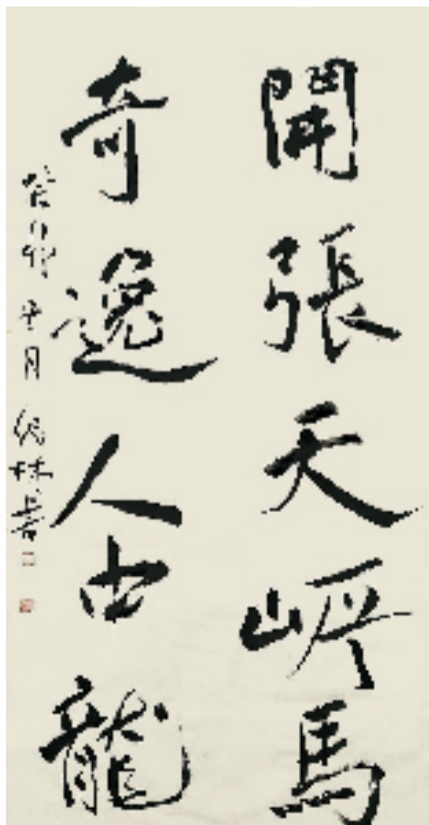 開張天岸馬
奇逸人中龍
癸卯 月 林書